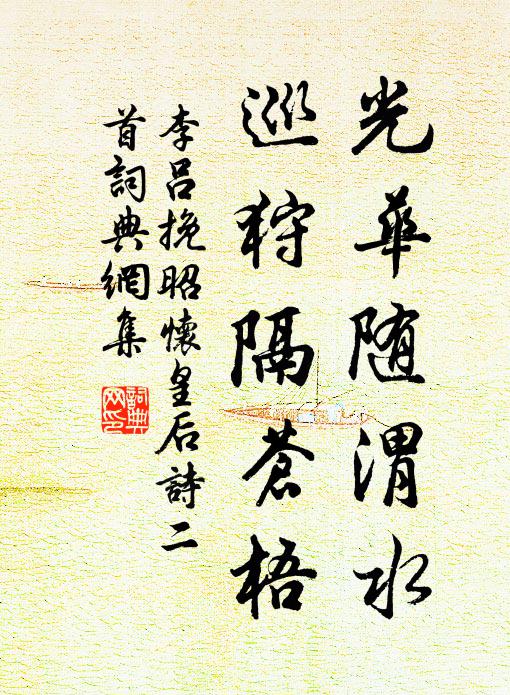 光華随渭水
巡狩隔蒼梧
李呂挽昭懷皇后詩二
首詞典網集
詞典
网印